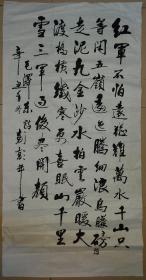 紅軍不怕遠征難萬水千山只
等閑五嶺逶迤騰細浪烏蒙磅
走泥丸金沙水拍雲崖暖大
渡橋橫鐵索寒更喜岷山千里
雪三軍過後盡開顏
毛澤東詩 書